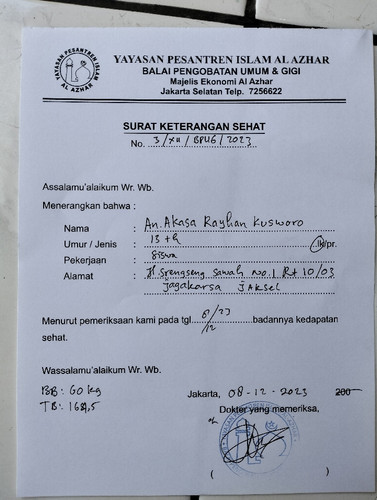 YAYASAN PESANTREN ISLAM AL AZHAR
BALAI PENGOBATAN UMUM & GIGI
Majelis Ekonomi Al Azhar
Jakarta Selatan Telp. 7256622
YAYASAN PESANTREN ISLAM
AL AZHAR
SURAT KETERANGAN SEHAT
No. 3/XII/BPUG/2023
Assalamu'alaikum Wr. Wb.
Menerangkan bahwa :
Nama : An. Akasa Rayhan Kusworo
Umur / Jenis : 13 th lk/pr.
Pekerjaan : Siswa
Alamat : Jl. Srengseng Sawah no.1 Rt 10/03
Jagakarsa Jaksel
Menurut pemeriksaan kami pada tgl. 8/12 23 badannya kedapatan
sehat.
Wassalamu'alaikum Wr. Wb.
BB: 60 kg
Jakarta, 08-12-2023 200
TB:
Dokter yang memeriksa,
( )